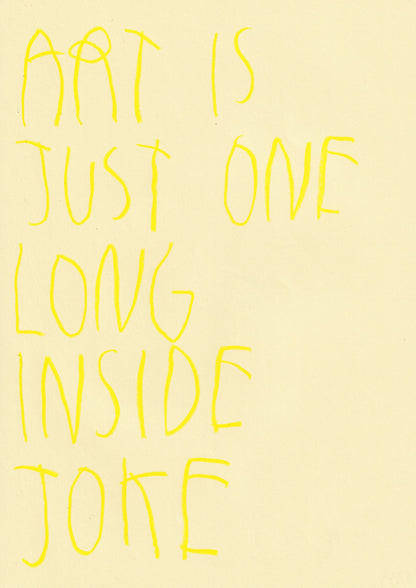 ART IS
JUST ONE
LONG
INSIDE
JOKE